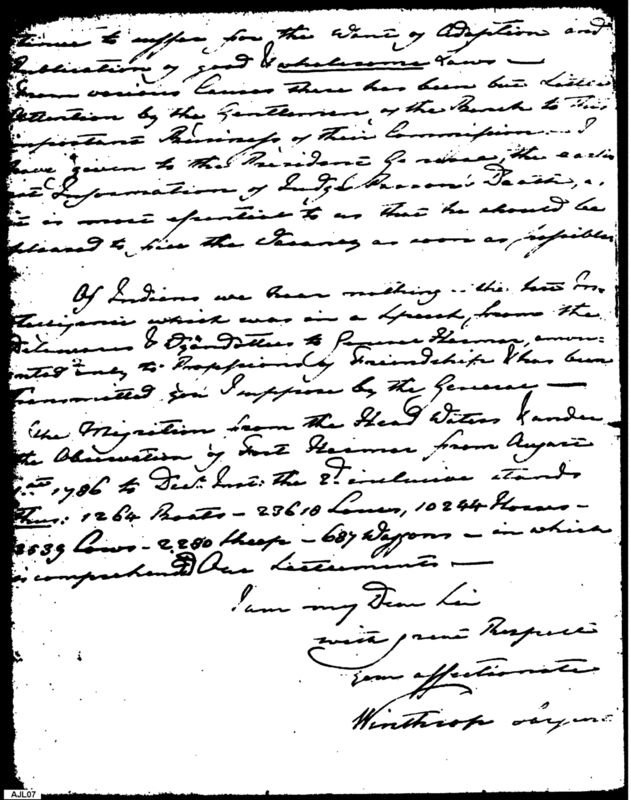 tinue to suffer for the Want of Adoption and
Publication of good & wholesome Laws —
From various Causes there has been but Little
Attention by the Gentlemen of the Bench to this
important Business of their Commission — I
have given to the President General, the earli
est Information of Judge Parson's Death, as
it is most essential to us that he should be
pleased to the Vacancy as soon as possible
Of Indians we hear nothing — the last In-
telligence which was in a Speech, from the
Delawares & Wyandottes to General Harmar, amou-
nted only to Professions of Friendship & has been
transmitted you I suppose by the General —
The Migration from the Head Waters & under
the Observation of Fort Harmar from August
1st 1786 to Decr. Inst: the 2d. inclusive stands
thus: 1264 Boats — 23618 Souls, 10244 Horses —
2539 Cows — 2280 Sheep — 687 Waggons — in which
is comprehended Our Settlements —
I am my Dear Sir
with great Respect
your affectionate
Winthrop Sargent
AJL07